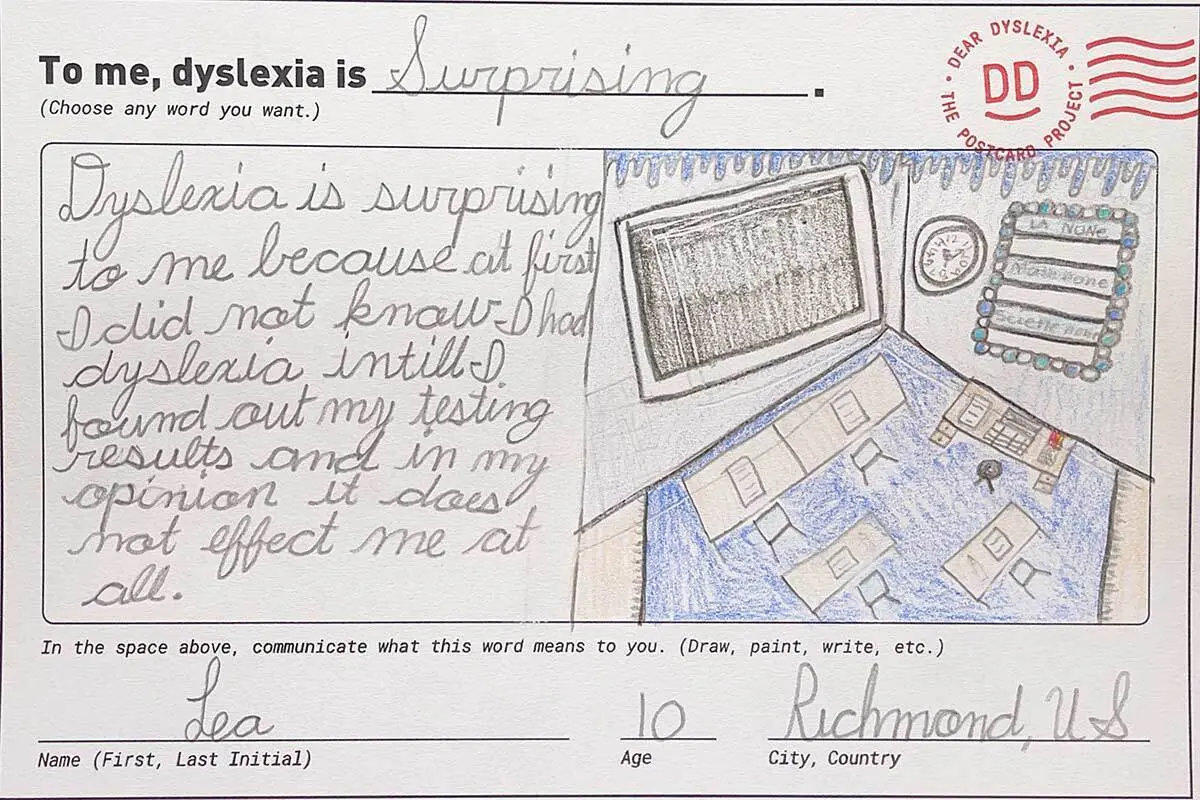 To me, dyslexia is Surprising.
(Choose any word you want.)
· DEAR DYSLEXIA · THE POSTCARD PROJECT
DD
Dyslexia is surprising
to me because at first
I did not know I had
dyslexia intill I
found out my testing
results and in my
opinion it does
not effect me at
all.
LA NONe
Math none
none
In the space above, communicate what this word means to you. (Draw, paint, write, etc.)
Lea
10
Richmond, US
Name (First, Last Initial)
Age
City, Country